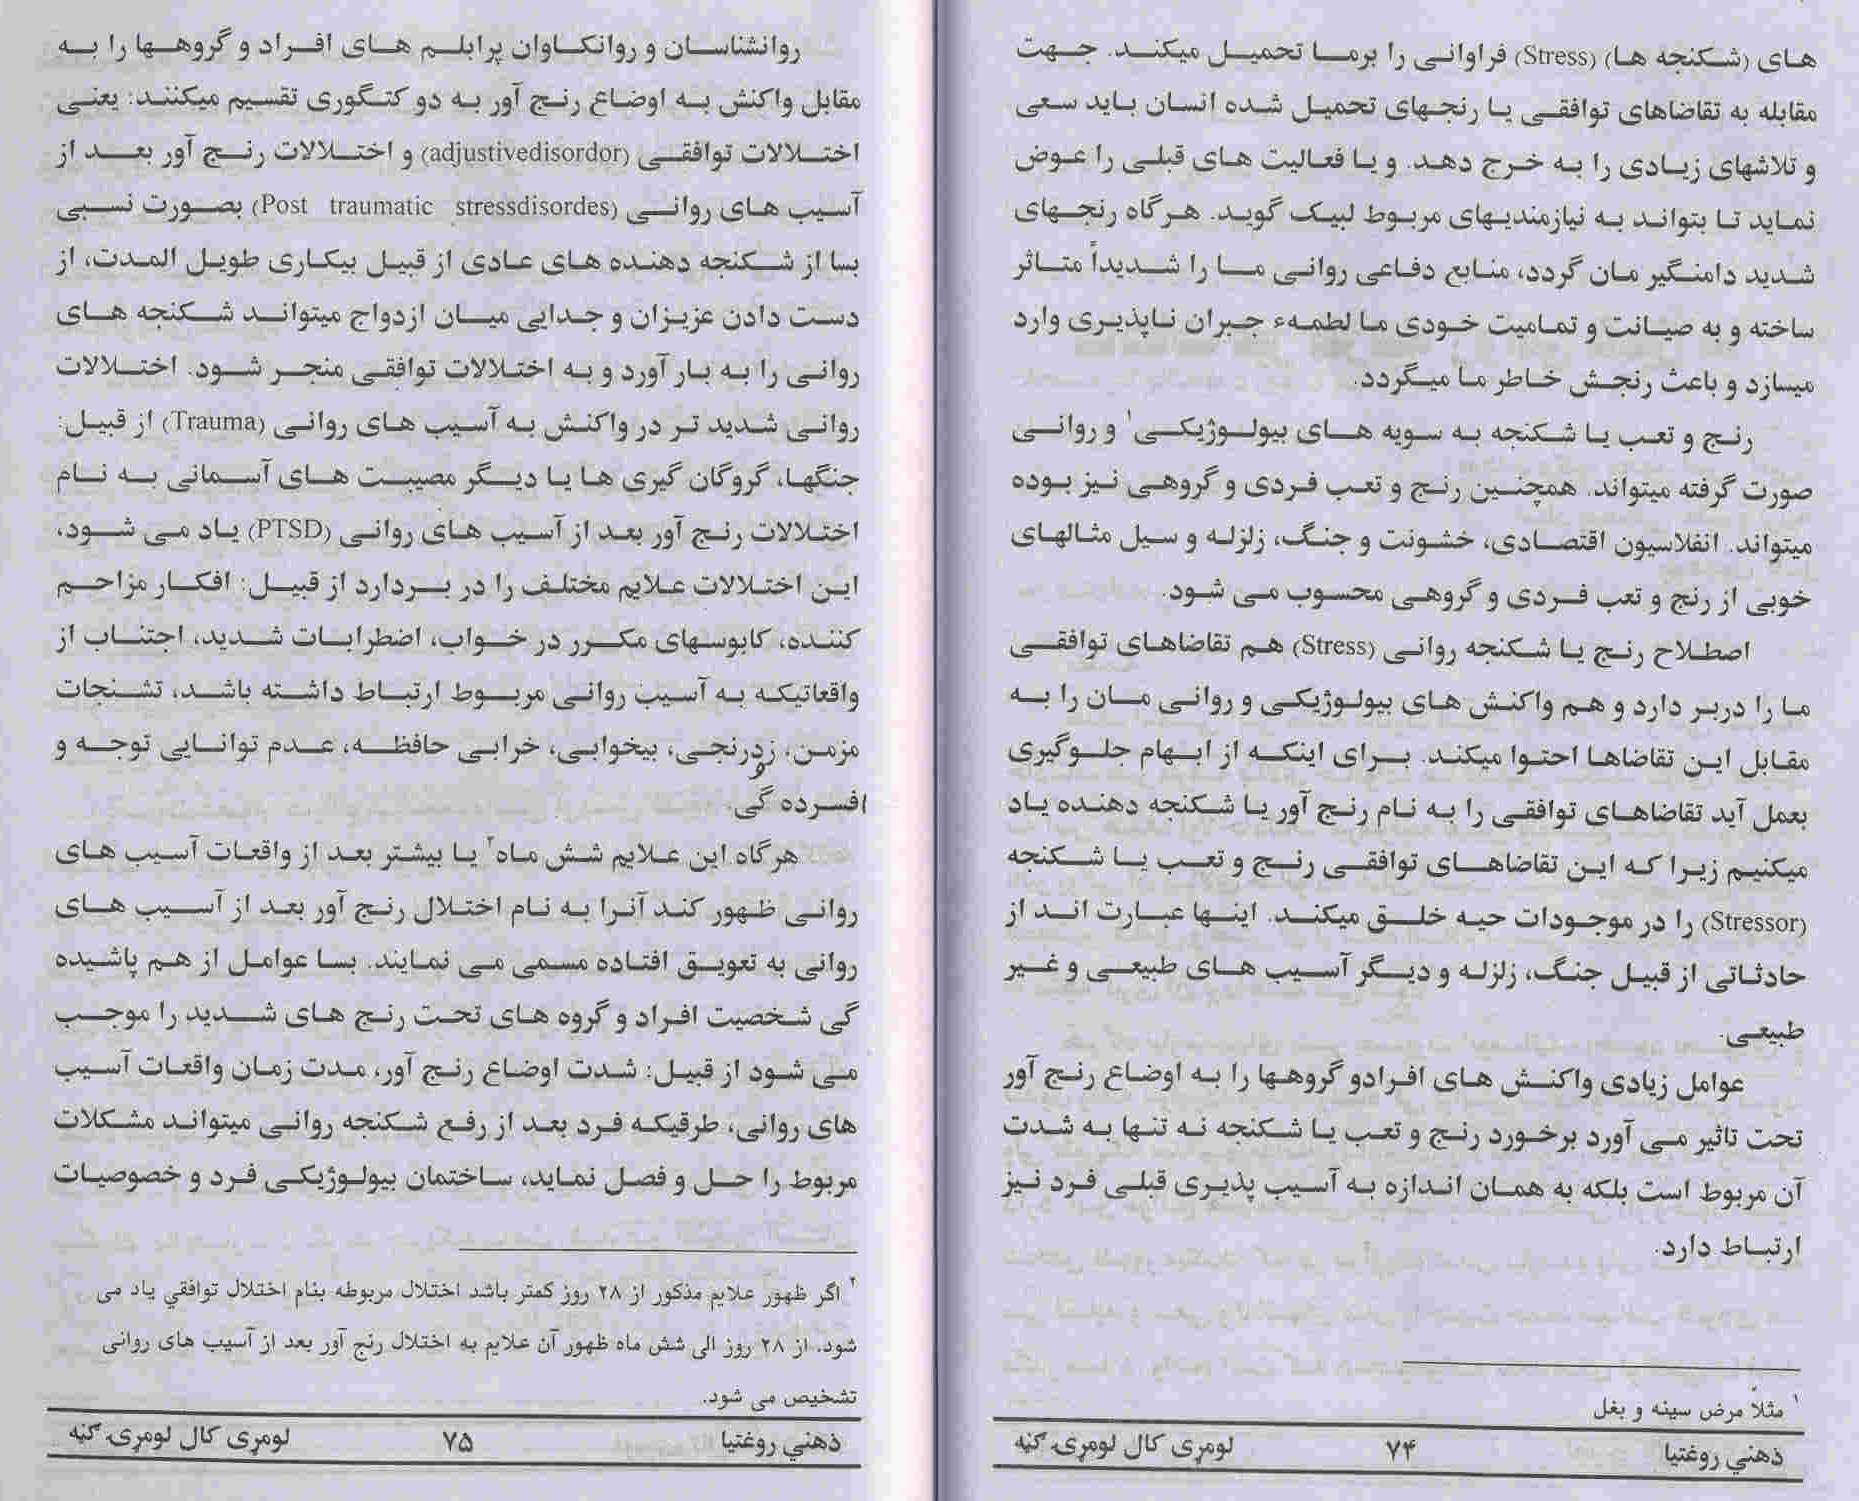 های (شکنجه ها) (Stress) فراوانی را برما تحمیل میکند. جهت
مقابله به تقاضاهای توافقی یا رنجهای تحمیل شده انسان باید سعی
و تلاشهای زیادی را به خرج دهد. و یا فعالیت های قبلی را عوض
نماید تا بتواند به نیازمندیهای مربوط لبیک گوید. هرگاه رنجهای
شدید دامنگیر مان گردد، منابع دفاعی روانی ما را شدیداً متاثر
ساخته و به صیانت و تمامیت خودی ما لطمهء جبران ناپذیری وارد
میسازد و باعث رنجش خاطر ما میگردد.
رنج و تعب یا شکنجه به سویه های بیولوژیکی۱ و روانی
صورت گرفته میتواند. همچنین رنج و تعب فردی و گروهی نیز بوده
میتواند. انفلاسیون اقتصادی، خشونت و جنگ، زلزله و سیل مثالهای
خوبی از رنج و تعب فردی و گروهی محسوب می شود.
اصطلاح رنج یا شکنجه روانی (Stress) هم تقاضاهای توافقی
ما را دربر دارد و هم واکنش های بیولوژیکی و روانی مان را به
مقابل این تقاضاها احتوا میکند. برای اینکه از ابهام جلوگیری
بعمل آید تقاضاهای توافقی را به نام رنج آور یا شکنجه دهنده یاد
میکنیم زیرا که این تقاضاهای توافقی رنج و تعب یا شکنجه
(Stressor) را در موجودات حیه خلق میکند. اینها عبارت اند از
حادثاتی از قبیل جنگ، زلزله و دیگر آسیب های طبیعی و غیر
طبیعی.
عوامل زیادی واکنش های افرادو گروهها را به اوضاع رنج آور
تحت تاثیر می آورد برخورد رنج و تعب یا شکنجه نه تنها به شدت
آن مربوط است بلکه به همان اندازه به آسیب پذیری قبلی فرد نیز
ارتباط دارد.
۱ مثلاً مرض سینه و بغل
ذهني روغتیا ۷۴ لومړی کال لومړۍ ګڼه
روانشناسان و روانکاوان پرابلم های افراد و گروهها را به
مقابل واکنش به اوضاع رنج آور به دو کتگوری تقسیم میکنند: یعنی
اختلالات توافقی (adjustivedisordor) و اختلالات رنج آور بعد از
آسیب های روانی (Post traumatic stressdisordes) بصورت نسبی
بسا از شکنجه دهنده های عادی از قبیل بیکاری طویل المدت، از
دست دادن عزیزان و جدایی میان ازدواج میتواند شکنجه های
روانی را به بار آورد و به اختلالات توافقی منجر شود. اختلالات
روانی شدید تر در واکنش به آسیب های روانی (Trauma) از قبیل:
جنگها، گروگان گیری ها یا دیگر مصیبت های آسمانی به نام
اختلالات رنج آور بعد از آسیب های روانی (PTSD) یاد می شود،
این اختلالات علایم مختلف را در بردارد از قبیل: افکار مزاحم
کننده، کابوسهای مکرر در خواب، اضطرابات شدید، اجتناب از
واقعاتیکه به آسیب روانی مربوط ارتباط داشته باشد، تشنجات
مزمن، زودرنجی، بیخوابی، خرابی حافظه، عدم توانایی توجه و
افسرده گی.
هرگاه این علایم شش ماه۲ یا بیشتر بعد از واقعات آسیب های
روانی ظهور کند آنرا به نام اختلال رنج آور بعد از آسیب های
روانی به تعویق افتاده مسمی می نمایند. بسا عوامل از هم پاشیده
گی شخصیت افراد و گروه های تحت رنج های شدید را موجب
می شود از قبیل: شدت اوضاع رنج آور، مدت زمان واقعات آسیب
های روانی، طرقیکه فرد بعد از رفع شکنجه روانی میتواند مشکلات
مربوط را حل و فصل نماید، ساختمان بیولوژیکی فرد و خصوصیات
۲ اگر ظهور علایم مذکور از ۲۸ روز کمتر باشد اختلال مربوطه بنام اختلال توافقي یاد می
شود. از ۲۸ روز الی شش ماه ظهور آن علایم به اختلال رنج آور بعد از آسیب های روانی
تشخیص می شود.
ذهني روغتیا ۷۵ لومړی کال لومړۍ ګڼه